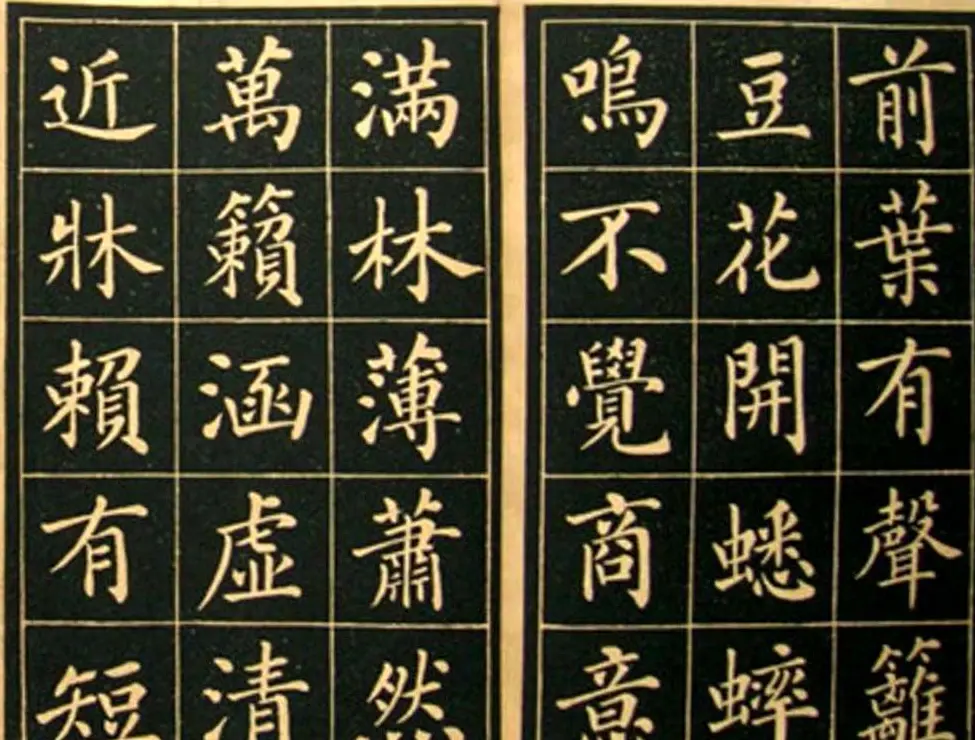 前葉有聲籬
豆花開蟋蟀
鳴不覺商意
滿林薄蕭然
萬籟涵虛清
近牀賴有短